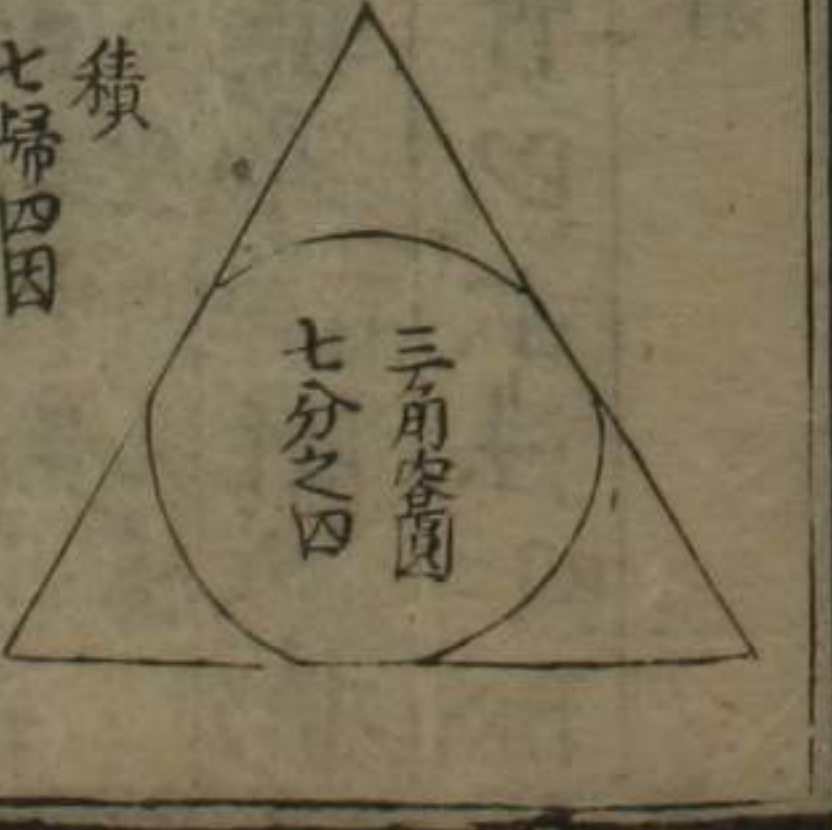 三角內容圓
七分之四
積
七歸四因